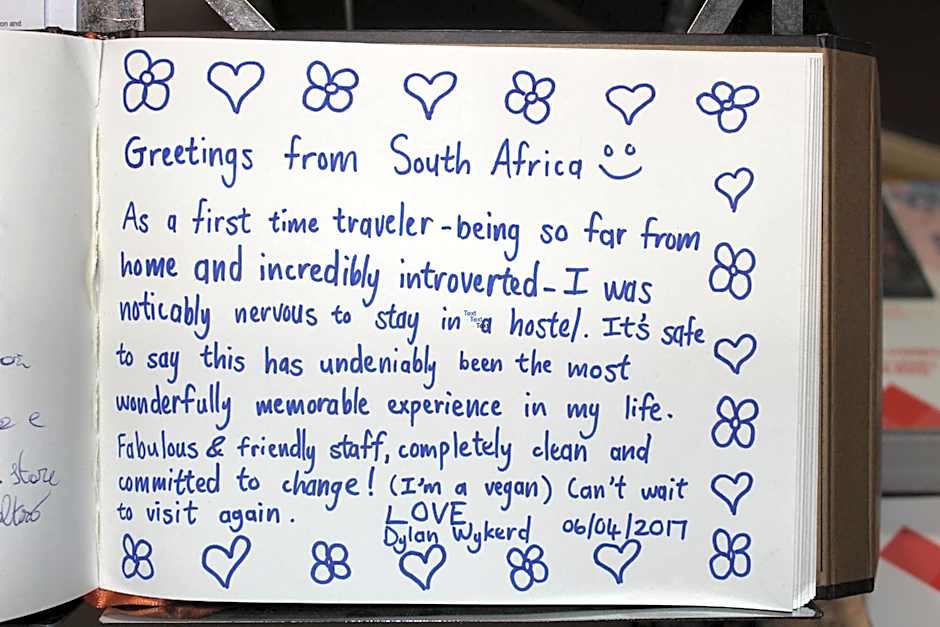 on and
Greetings from South Africa
As a first time traveler - being so far from
home and incredibly introverted - I was
noticably nervous to stay in a hostel. It's safe
to say this has undeniably been the most
wonderfully memorable experience in my life.
Fabulous & friendly staff, completely clean and
committed to change! (I'm a vegan) Can't wait
to visit again.
LOVE
Dylan Wykerd 06/04/2017
Text
Text
Text
store